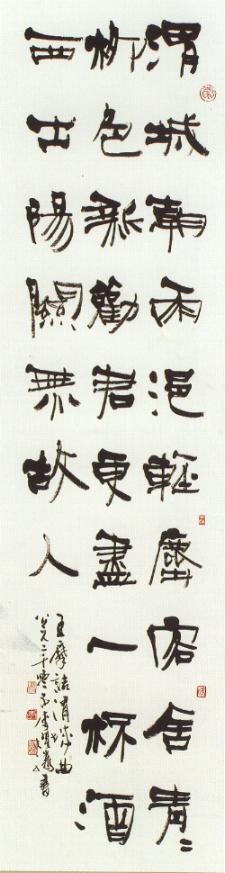 渭城朝雨浥輕塵客舍青〻
柳色新勸君更盡一杯酒
西出陽關無故人
王摩詰渭城曲
公元二千零 書